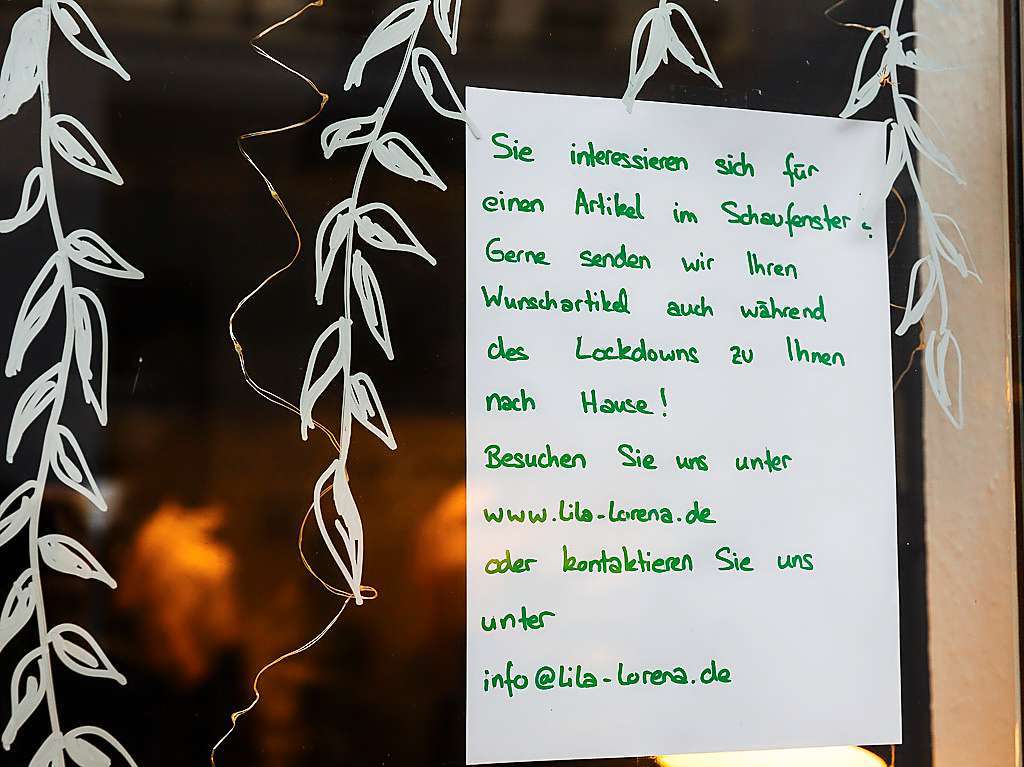 Sie interessieren sich für
einen Artikel im Schaufenster?
Gerne senden wir Ihren
Wunschartikel auch während
des Lockdowns zu Ihnen
nach Hause!
Besuchen Sie uns unter
www.lila-lorena.de
oder kontaktieren Sie uns
unter
info@lila-lorena.de